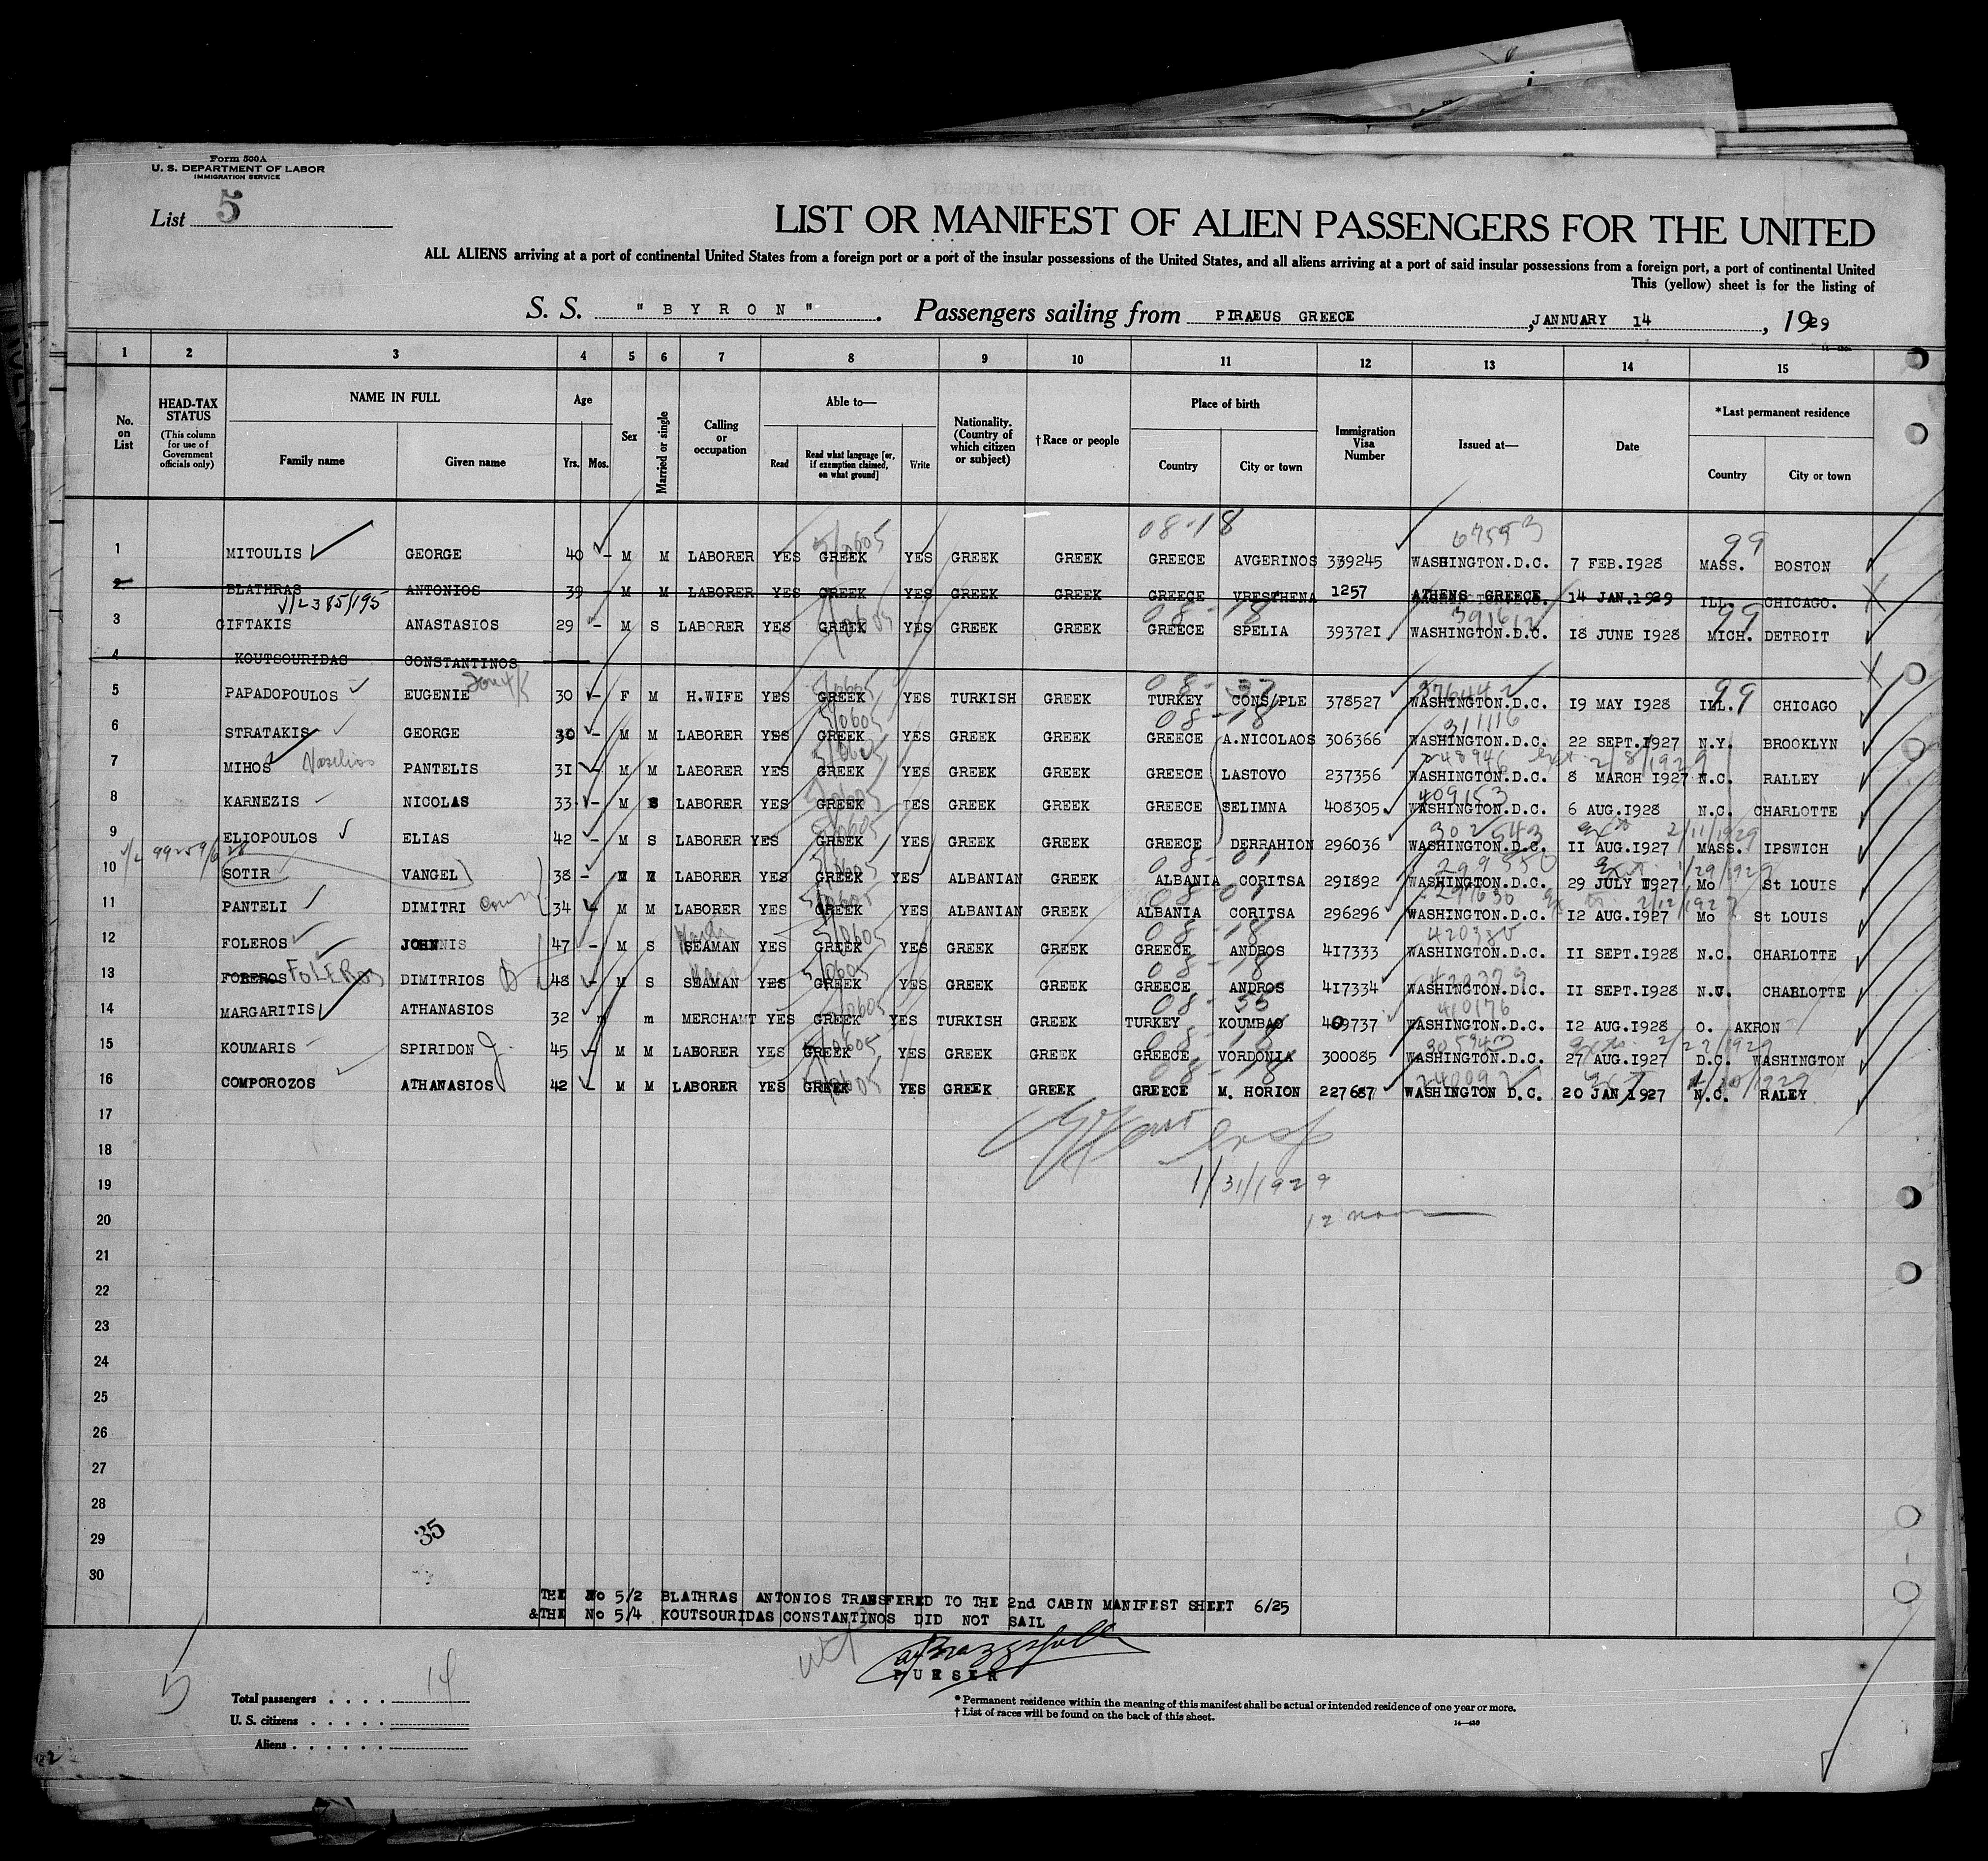 Form 500A
U. S. DEPARTMENT OF LABOR
IMMIGRATION SERVICE
List 5
LIST OR MANIFEST OF ALIEN PASSENGERS FOR THE UNITED
ALL ALIENS arriving at a port of continental United States from a foreign port or a port of the insular possessions of the United States, and all aliens arriving at a port of said insular possessions from a foreign port, a port of continental United
This (yellow) sheet is for the listing of
S. S. " B Y R O N " . Passengers sailing from PIRAEUS GREECE , JANNUARY 14 , 1929
1 2 3 4 5 6 7 8 9 10 11 12 13 14 15
No. on List
HEAD-TAX STATUS
(This column for use of Government officials only)
NAME IN FULL
Family name Given name
Age
Yrs. Mos.
Sex
Married or single
Calling or occupation
Able to—
Read Read what language [or, if exemption claimed, on what ground] Write
Nationality. (Country of which citizen or subject)
†Race or people
Place of birth
Country City or town
Immigration Visa Number
Issued at—
Date
*Last permanent residence
Country City or town
08-18 99
1 MITOULIS GEORGE 40 - M M LABORER YES GREEK YES GREEK GREEK GREECE AVGERINOS 339245 WASHINGTON.D.C. 7 FEB.1928 MASS. BOSTON
2 BLATHRAS ANTONIOS 39 - M M LABORER YES GREEK YES GREEK GREEK GREECE VRESTHENA 1257 ATHENS GREECE. 14 JAN.1929 ILL. CHICAGO.
08-18 391612 99
3 GIFTAKIS ANASTASIOS 29 - M S LABORER YES GREEK YES GREEK GREEK GREECE SPELIA 393721 WASHINGTON.D.C. 18 JUNE 1928 MICH. DETROIT
4 KOUTSOURIDAS CONSTANTINOS
5/0605 08-37 376442 99
5 PAPADOPOULOS EUGENIE 30 - F M H.WIFE YES GREEK YES TURKISH GREEK TURKEY CONS/PLE 378527 WASHINGTON.D.C. 19 MAY 1928 ILL. CHICAGO
5/0605 08-18 311116
6 STRATAKIS GEORGE 30 - M M LABORER YES GREEK YES GREEK GREEK GREECE A.NICOLAOS 306366 WASHINGTON.D.C. 22 SEPT.1927 N.Y. BROOKLYN
5/0605 248946 2/8/1929
7 MIHOS Vasilios PANTELIS 31 - M M LABORER YES GREEK YES GREEK GREEK GREECE LASTOVO 237356 WASHINGTON.D.C. 8 MARCH 1927 N.C. RALLEY
5/0605 409153
8 KARNEZIS NICOLAS 33 - M S LABORER YES GREEK YES GREEK GREEK GREECE SELIMNA 408305 WASHINGTON.D.C. 6 AUG.1928 N.C. CHARLOTTE
5/0605 302543 2/11/1929
9 ELIOPOULOS ELIAS 42 - M S LABORER YES GREEK YES GREEK GREEK GREECE DERRAHION 296036 WASHINGTON.D.C. 11 AUG.1927 MASS. IPSWICH
5/0605 08-01 299550 1/29/1929
10 SOTIR VANGEL 38 - M M LABORER YES GREEK YES ALBANIAN GREEK ALBANIA CORITSA 291892 WASHINGTON.D.C. 29 JULY 1927 Mo St LOUIS
5/0605 08-01 2/12/1929
11 PANTELI DIMITRI 34 - M M LABORER YES GREEK YES ALBANIAN GREEK ALBANIA CORITSA 296296 WASHINGTON.D.C. 12 AUG.1927 Mo St LOUIS
5/0605 08-18 420380
12 FOLEROS JOHNNIS 47 - M S SEAMAN YES GREEK YES GREEK GREEK GREECE ANDROS 417333 WASHINGTON.D.C. 11 SEPT.1928 N.C. CHARLOTTE
5/0605 08-18 420379
13 FOREROS FOLEROS DIMITRIOS 48 - M S SEAMAN YES GREEK YES GREEK GREEK GREECE ANDROS 417334 WASHINGTON.D.C. 11 SEPT.1928 N.C. CHARLOTTE
5/0605 08-55 410176
14 MARGARITIS ATHANASIOS 32 m m MERCHANT YES GREEK YES TURKISH GREEK TURKEY KOUMBAO 409737 WASHINGTON.D.C. 12 AUG.1928 O. AKRON
5/0605 08-18 305943 2/27/1929
15 KOUMARIS SPIRIDON 45 - M M LABORER YES GREEK YES GREEK GREEK GREECE VORDONIA 300085 WASHINGTON.D.C. 27 AUG.1927 D.C. WASHINGTON
08-18
16 COMPOROZOS ATHANASIOS 42 - M M LABORER YES GREEK YES GREEK GREEK GREECE M. HORION 227687 WASHINGTON D.C. 20 JAN 1927 N.C. RALEY
17
18
19 1/31/1929
20 12 noon
21
22
23
24
25
26
27
28
29 35
30
THE No 5/2 BLATHRAS ANTONIOS TRANSFERED TO THE 2nd CABIN MANIFEST SHEET 6/25
&THE No 5/4 KOUTSOURIDAS CONSTANTINOS DID NOT SAIL
PURSER
5
Total passengers . . . . 14
U. S. citizens . . . . .
Aliens . . . . . .
* Permanent residence within the meaning of this manifest shall be actual or intended residence of one year or more.
† List of races will be found on the back of this sheet.
14—430